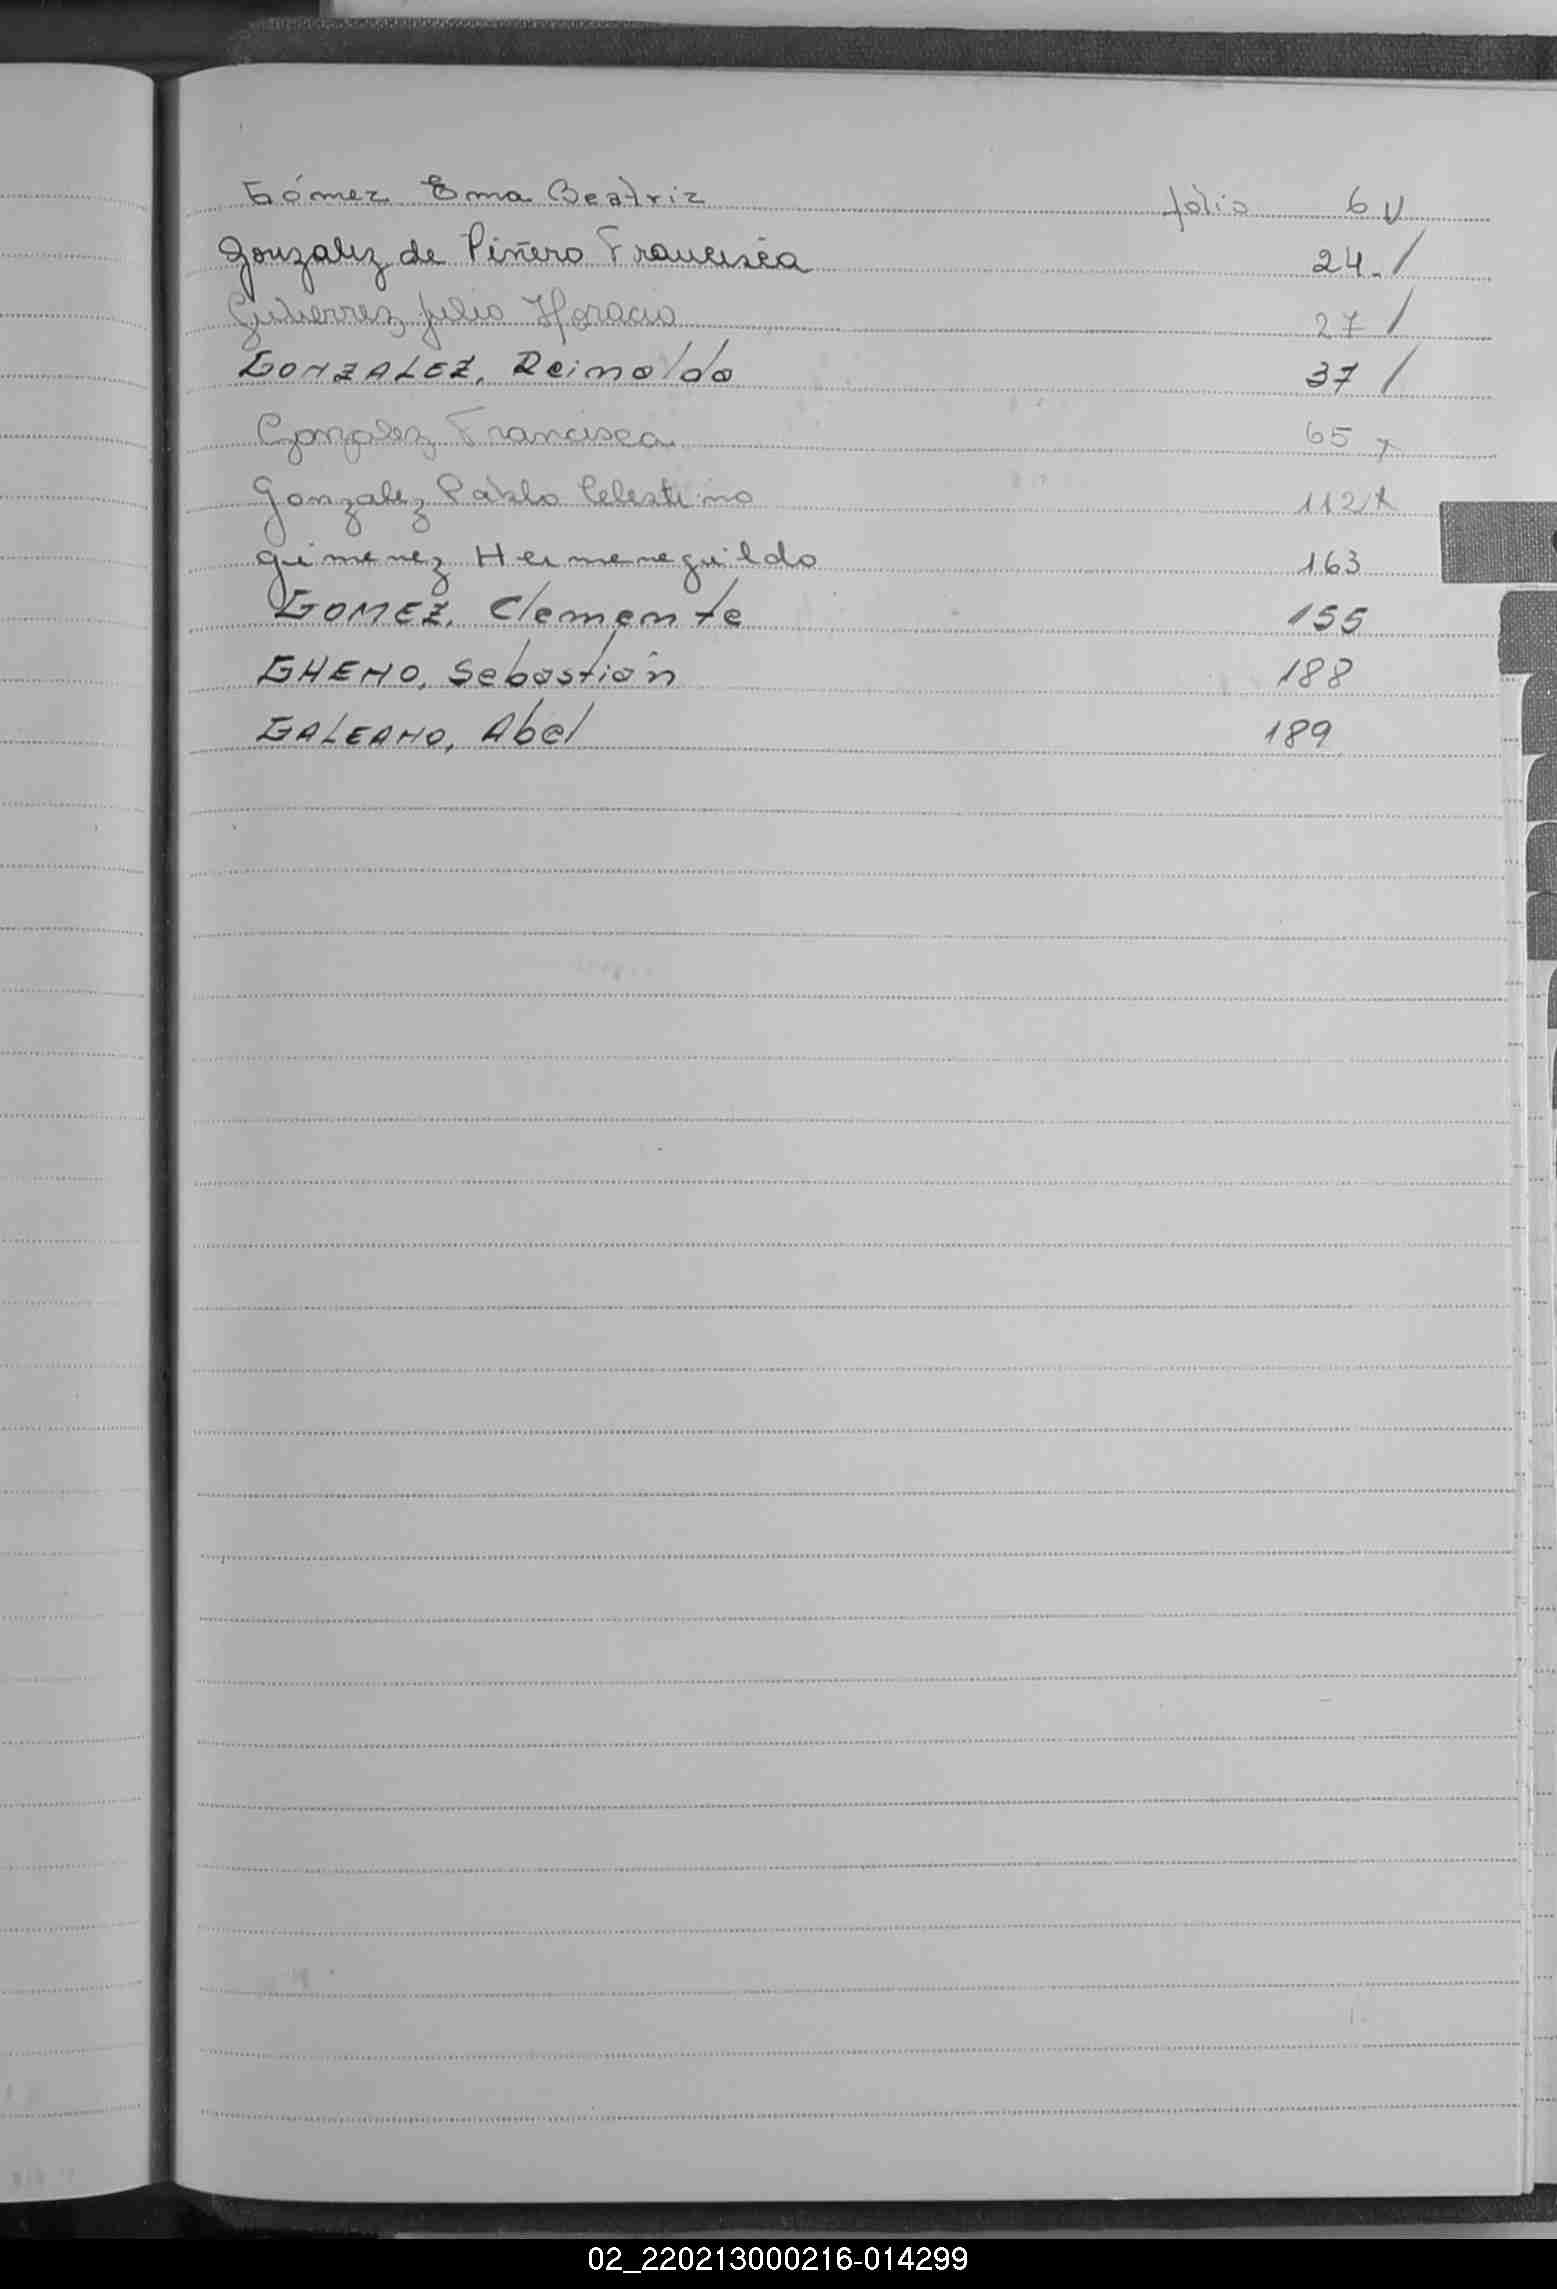 Gómez Ema Beatriz folio 6 v
Gonzalez de Piñero Francisca 24. /
Gutierrez Julio Horacio 27 /
GONZALEZ, Reinaldo 37 /
Gonzalez Francisca 65 x
Gonzalez Pablo Celestino 112 x
Gimenez Hermenegildo 163
GOMEZ, Clemente 155
GHENO, Sebastián 188
GALEANO, Abel 189
02_220213000216-014299